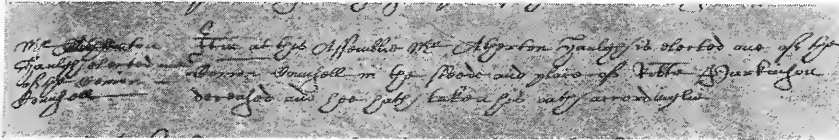 Mr Atherton
Hanlyes elected one
of the Comon
Counsell
Itm at this Assemblie Mr Atherton Hanlyes is elected one of the
Comon Counsell in the steede and place of
deceased and hee hath taken his oathe accordinglie